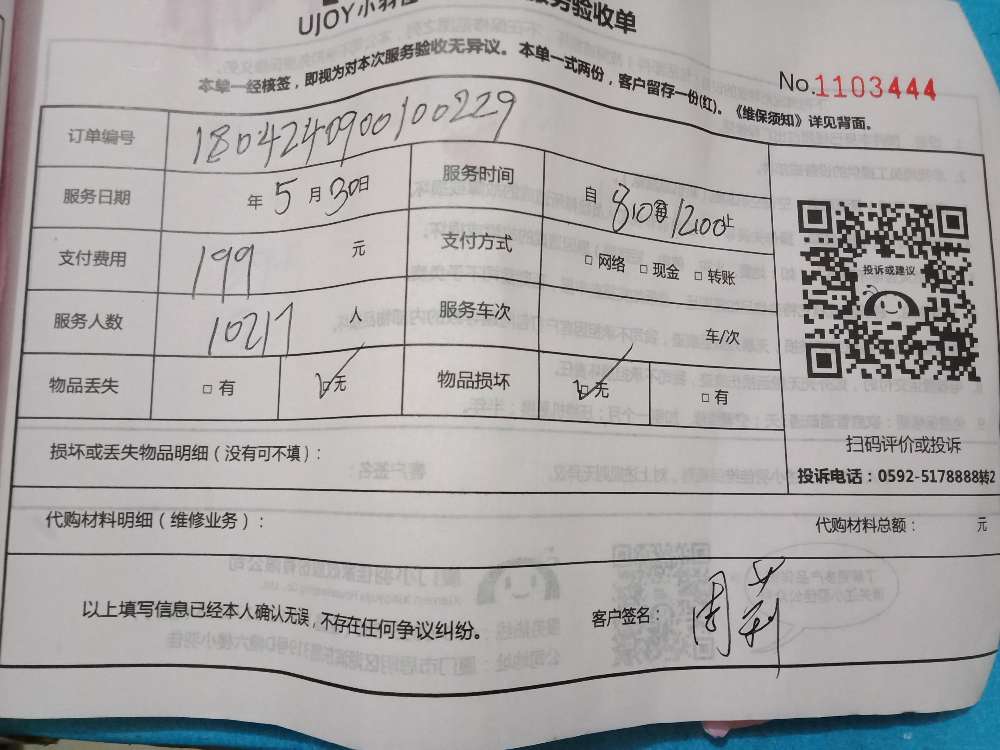 UJOY小羽佳 服务验收单
本单一经核签，即视为对本次服务验收无异议。本单一式两份，客户留存一份(红)。《维保须知》详见背面。
No.1103444
订单编号 1804240900100229
服务日期 年 5 月 30 日 服务时间 自 810 至 1200 止
支付费用 199 元 支付方式 □ 网络 □ 现金 □ 转账
服务人数 10217 人 服务车次 车/次
物品丢失 □ 有 ☑ 无 物品损坏 ☑ 无 □ 有
投诉或建议
扫码评价或投诉
投诉电话：0592-5178888转2
损坏或丢失物品明细（没有可不填）：
代购材料明细（维修业务）： 代购材料总额： 元
以上填写信息已经本人确认无误，不存在任何争议纠纷。 客户签名：